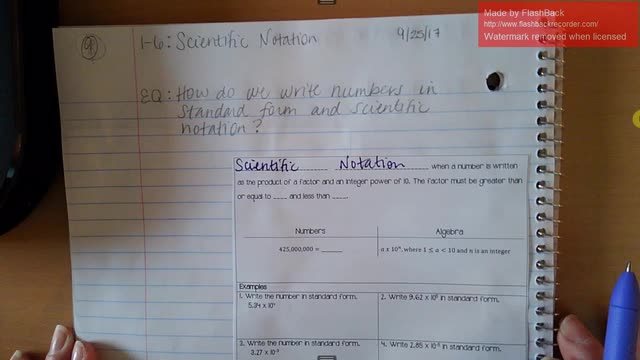 Made by FlashBack
http://www.flashbackrecorder.com/
Watermark removed when licensed
1-6: Scientific Notation 9/25/17
EQ: How do we write numbers in
standard form and scientific
notation?
Scientific Notation when a number is written
as the product of a factor and an integer power of 10. The factor must be greater than
or equal to ____ and less than ____.
Numbers Algebra
425,000,000 = ______ a x 10ⁿ, where 1 ≤ a < 10 and n is an integer
Examples
1. Write the number in standard form. 2. Write 9.62 x 10 in standard form.
5.34 x 10
3. Write the number in standard form. 4. Write 2.85 x 10 in standard form.
3.27 x 10